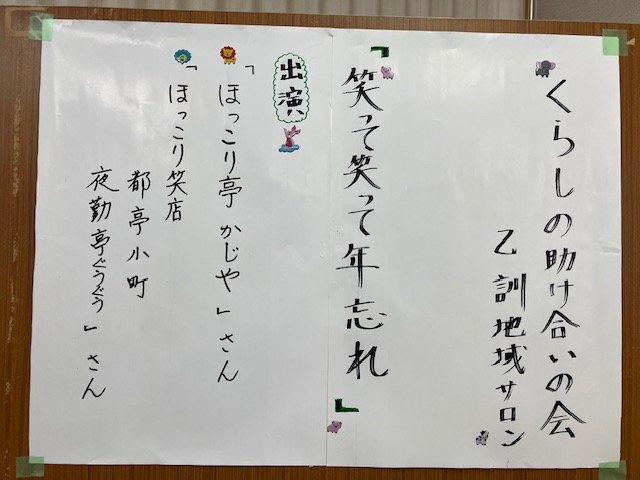 くらしの助け合いの会
乙訓地域サロン
「笑って笑って年忘れ」
出演
「ほっこり亭 かじや」さん
「ほっこり笑店
都亭小町
夜勤亭ぐうぐう」さん